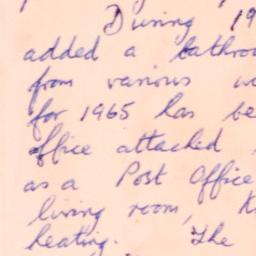 During 19
added a bathroo
from various wo
for 1965 has be
office attached
as a Post Office
living room, K
heating. The